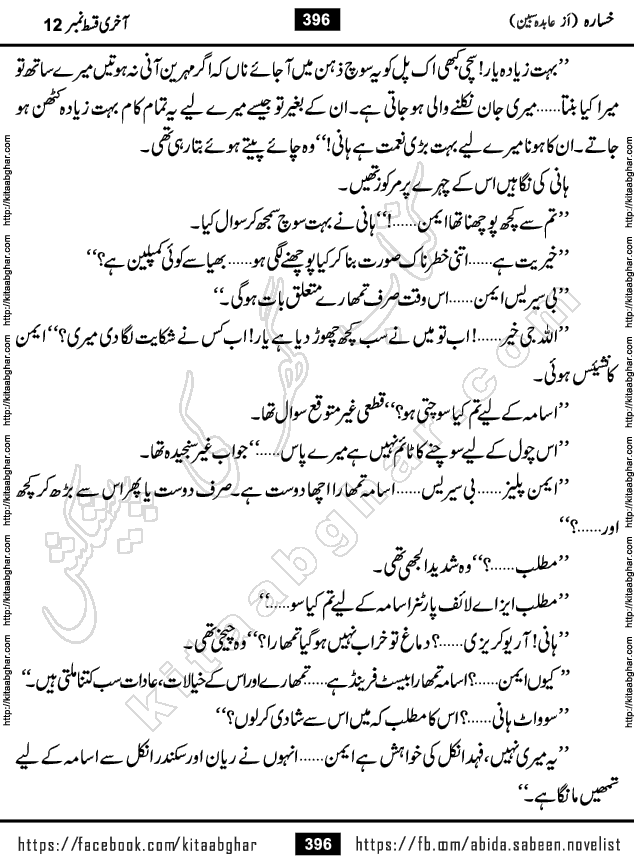 خسارہ (از عابدہ سبین)
396
آخری قسط نمبر 12
’’بہت زیادہ یار! سچی کبھی اک پل کو یہ سوچ ذہن میں آ جائے ناں کہ اگر مہرین آنی نہ ہوتیں میرے ساتھ تو
میرا کیا بنتا......میری جان نکلنے والی ہو جاتی ہے۔ ان کے بغیر تو جیسے میرے لیے یہ تمام کام بہت زیادہ کٹھن ہو
جاتے۔ ان کا ہونا میرے لیے بہت بڑی نعمت ہے ہانی!‘‘ وہ چائے پیتے ہوئے بتا رہی تھی۔
ہانی کی نگاہیں اس کے چہرے پر مرکوز تھیں۔
’’تم سے کچھ پوچھنا تھا ایمن......!‘‘ ہانی نے بہت سوچ سمجھ کر سوال کیا۔
’’خیریت ہے......اتنی خطرناک صورت بنا کر کیا پوچھنے لگی ہو......بھیا سے کوئی کمپلین ہے؟‘‘
’’بی سیریس ایمن......اس وقت صرف تمھارے متعلق بات ہوگی۔‘‘
’’اللہ جی خیر......! اب تو میں نے سب کچھ چھوڑ دیا ہے یار! اب کس نے شکایت لگا دی میری؟‘‘ ایمن
کانشیئس ہوئی۔
’’اسامہ کے لیے تم کیا سوچتی ہو؟‘‘ قطعی غیر متوقع سوال تھا۔
’’اس چول کے لیے سوچنے کا ٹائم نہیں ہے میرے پاس......‘‘ جواب غیر سنجیدہ تھا۔
’’ایمن پلیز......بی سیریس......اسامہ تمھارا اچھا دوست ہے۔ صرف دوست یا پھر اس سے بڑھ کر کچھ
اور......؟‘‘
’’مطلب......؟‘‘ وہ شدید الجھی تھی۔
’’مطلب ایز اے لائف پارٹنر اسامہ کے لیے تم کیا سو......‘‘
’’ہانی! آر یو کریزی......؟ دماغ تو خراب نہیں ہو گیا تمھارا؟‘‘ وہ چیخی تھی۔
’’کیوں ایمن......؟ اسامہ تمھارا بیسٹ فرینڈ ہے......تمھارے اور اس کے خیالات، عادات سب کتنا ملتی ہیں۔‘‘
’’سو واٹ ہانی......؟ اس کا مطلب کہ میں اس سے شادی کر لوں؟‘‘
’’یہ میری نہیں، فہد انکل کی خواہش ہے ایمن......انہوں نے ریان اور سکندر انکل سے اسامہ کے لیے
تمھیں مانگا ہے۔‘‘
https://facebook.com/kitaabghar
396
https://fb.com/abida.sabeen.novelist
http://kitaabghar.com http://kitaabghar.com http://kitaabghar.com http://kitaabghar.com http://kitaabghar.com http://kitaabghar.com
http://kitaabghar.com http://kitaabghar.com http://kitaabghar.com http://kitaabghar.com http://kitaabghar.com http://kitaabghar.com
کتاب گھر کی پیشکش
kitaabghar.com